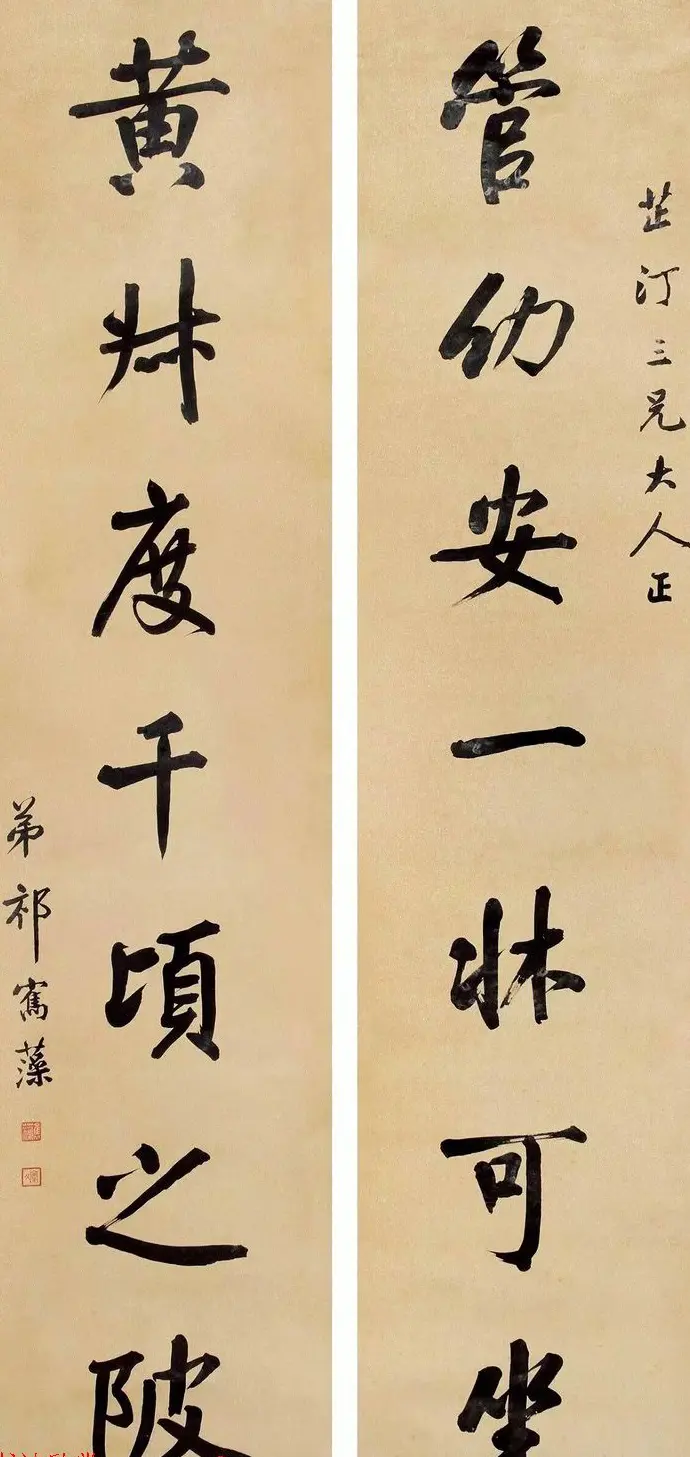 芷汀三兄大人正
管幼安一牀可坐
黄叔度千頃之陂
弟祁寯藻